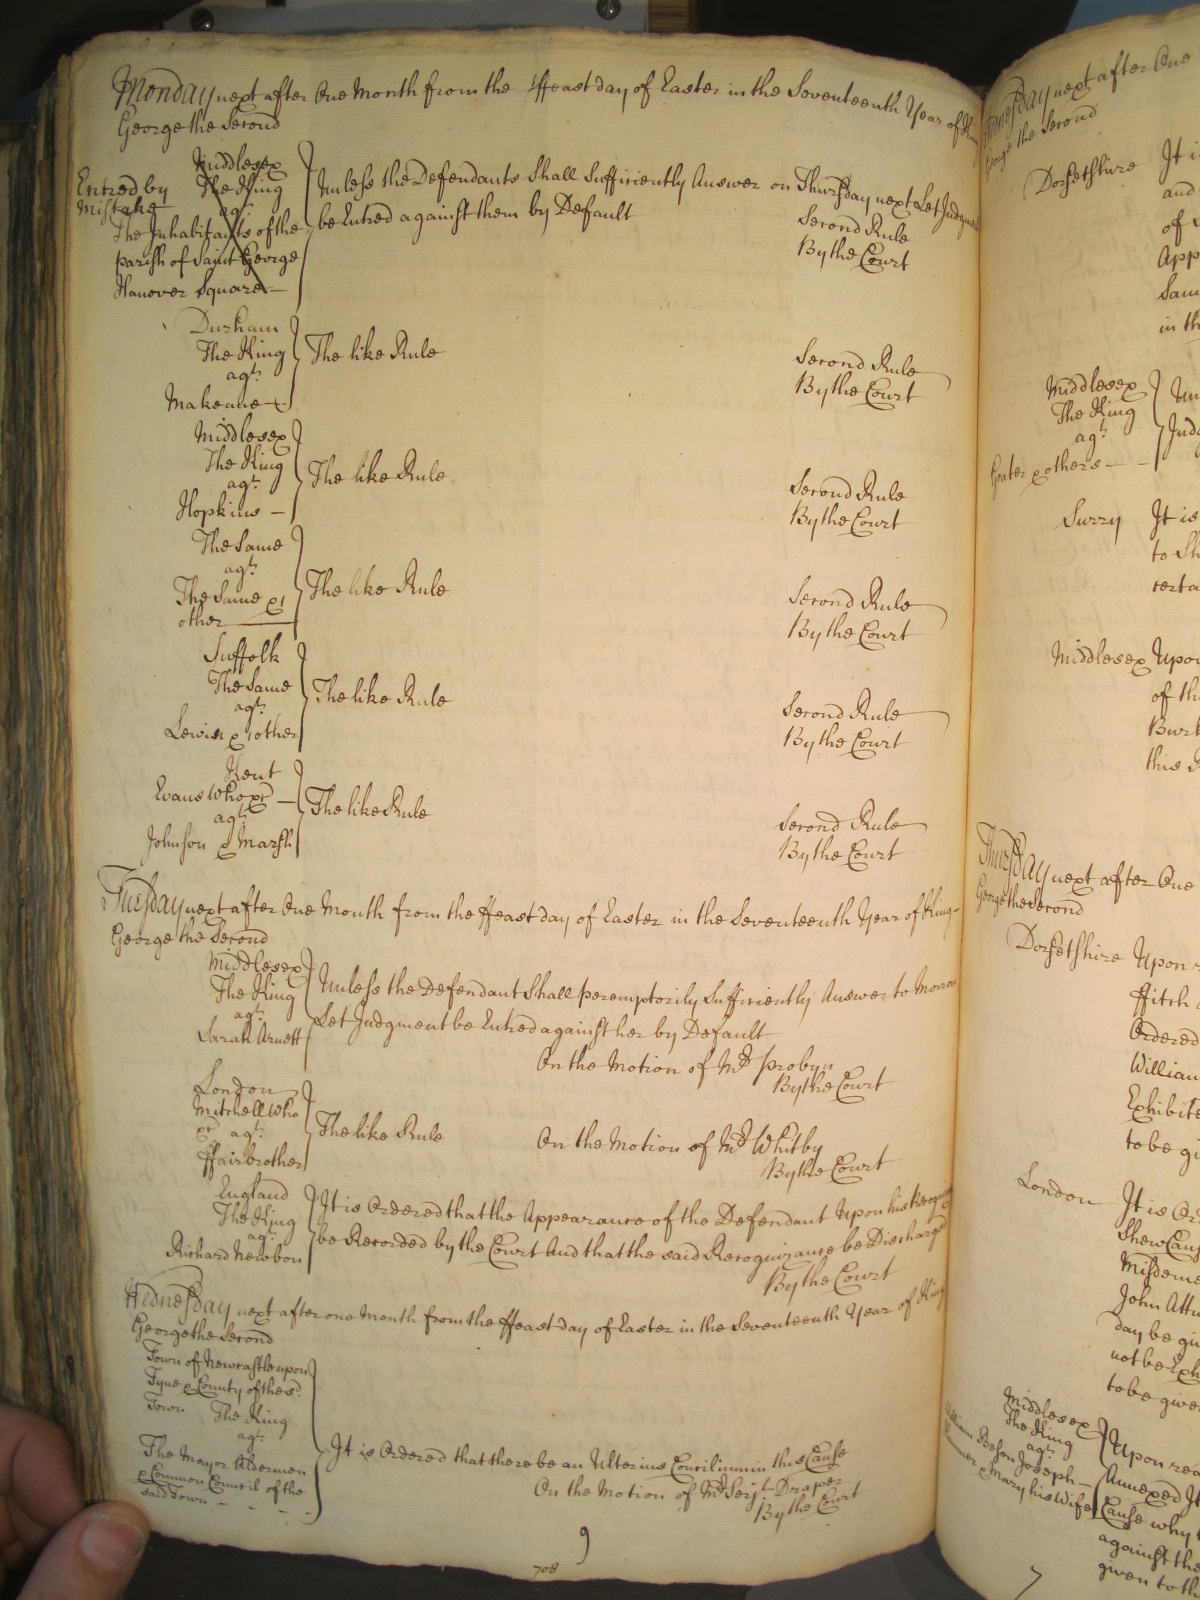 Monday next after One Month from the ffeast day of Easter in the Seventeenth Year of
George the Second
Middlesex
Entred by
Mistake
The King
agt.
The Inhabitants of the
parish of Saint George
Hanover Square
Unless the Defendants Shall Sufficiently Answer on Thursday next Let Judgment
be Entred against them by Default
Second Rule
By the Court
Durham
The King
agt.
Makeane
The like Rule
Second Rule
By the Court
Middlesex
The King
agt.
Hopkins
The like Rule
Second Rule
By the Court
The Same
agt.
The Same & 1
other
The like Rule
Second Rule
By the Court
Suffolk
The Same
agt.
Lewin & 1 other
The like Rule
Second Rule
By the Court
Kent
Evans Who &c
agt.
Johnson & Marsh
The like Rule
Second Rule
By the Court
Tuesday next after One Month from the ffeast day of Easter in the Seventeenth Year of King
George the Second
Middlesex
The King
agt.
Sarah Arnett
Unless the Defendant Shall peremptorily Sufficiently Answer to Morrow
Let Judgment be Entred against her by Default
On the Motion of Mr. Probyn
By the Court
London
Mitchell Who
agt.
ffairbrother
The like Rule
On the Motion of Mr. Whitby
By the Court
England
The King
agt.
Richard Newbon
It is Ordered that the Appearance of the Defendant Upon his
be Recorded by the Court And that the said Recognizance be Discharged
By the Court
Wednesday next after one Month from the ffeast day of Easter in the Seventeenth Year of King
George the Second
Town of Newcastle upon
Tyne & County of the sd.
Town The King
agt.
The Mayor Aldermen
& Common Council of the
said Town
It is Ordered that there be an Ulterius Concilium in this Cause
On the Motion of Mr. Serjt. Draper
By the Court
9
708
Wednesday next after One
George the Second
Dorsetshire
It i
and
of
App
Sam
in th
Middlesex
The King
agt.
& others
Un
Judg
Surry
It is
to Sh
certa
Middlesex
Upon
of th
Burt
this
Thursday next after One
George the Second
Dorsetshire
Upon
ffitch
Ordered
William
Exhibite
to be gi
London
It is Or
Shew Caus
Misdeme
John Attw
day be gi
not be Exh
to be given
Middlesex
The King
agt.
William Joseph
& Mary his Wife
Upon rea
Annexed It
Cause why
against the
given to th
7